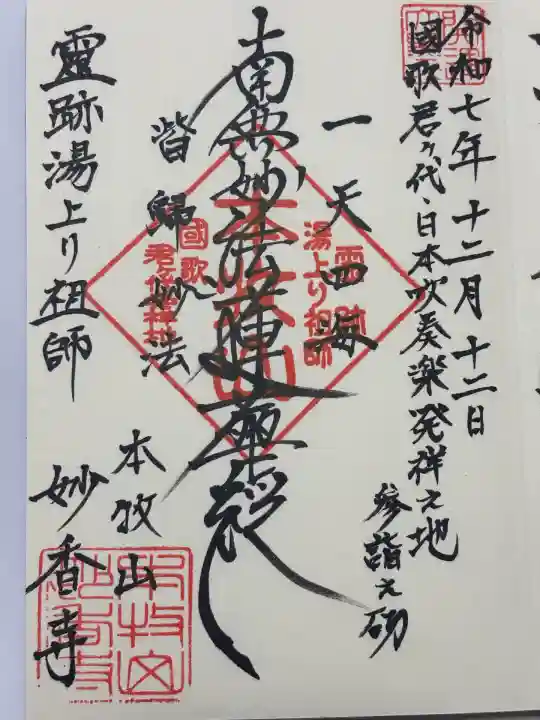 令和七年十二月十二日
國歌君ヶ代・日本吹奏楽発祥之地
参詣之砌
一天四海
南無妙法蓮華経
皆歸妙法
靈跡湯上り祖師
本牧山
妙香寺
靈跡
湯上り祖師
國歌